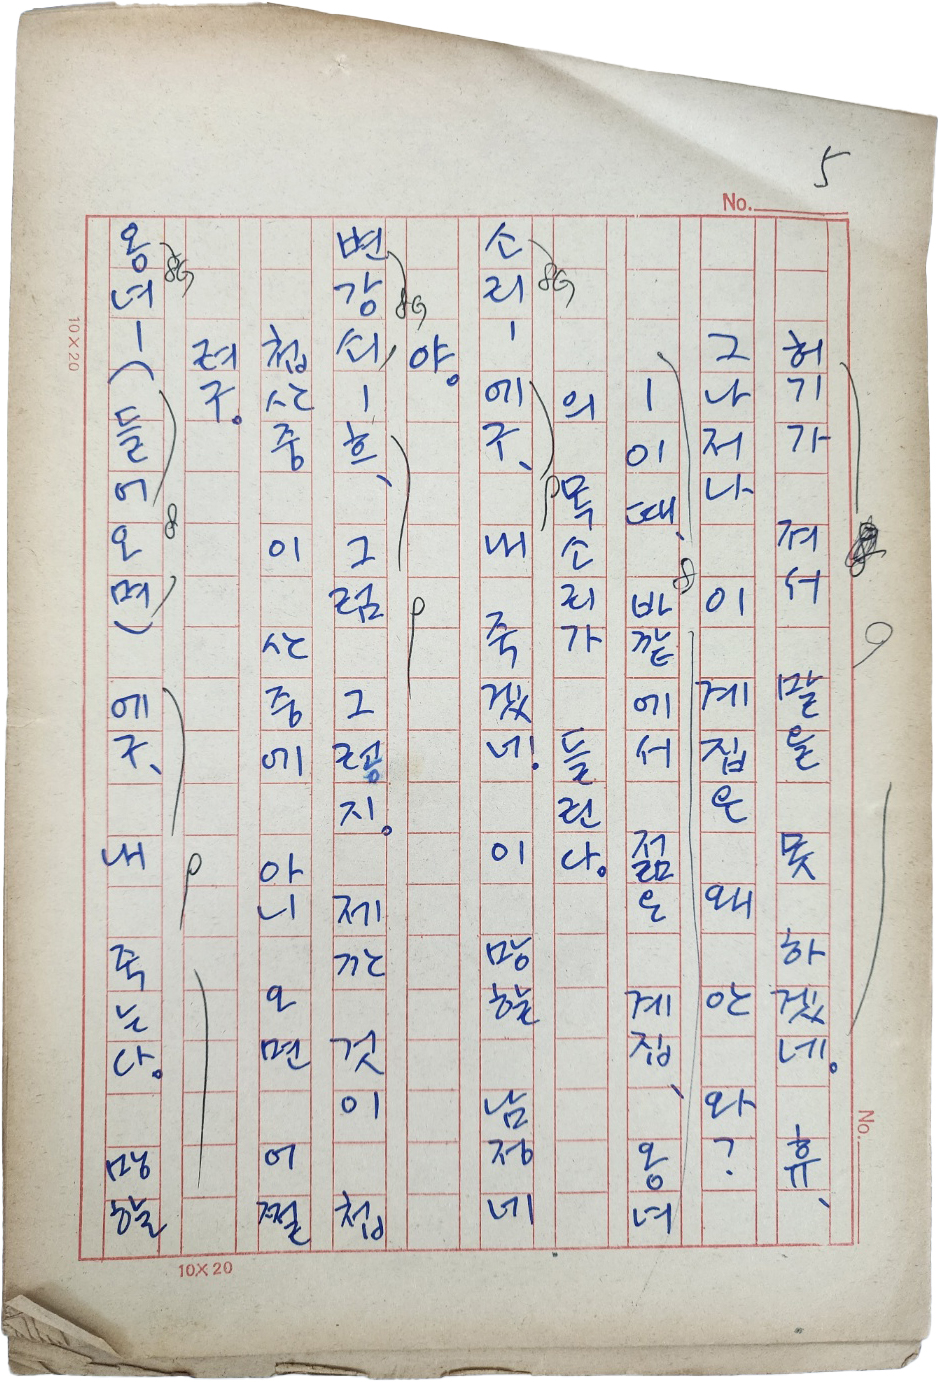 5
No.
허기가 져서 말을 못 하겠네. 휴,
그나저나 이 계집은 왜 안 와?
ㅣ이때, 바깥에서 젊은 계집, 옹녀
의 목소리가 들린다.
소리ㅣ 에구, 내 죽겠네! 이 망할 남정네
야.
변강쇠ㅣ흐, 그럼 그렇지. 제깐 것이 첩
첩산중 이 산중에 아니 오면 어쩔
려구.
옹녀ㅣ(들어오며) 에구, 내 죽는다. 망할
10×20
10×20
No.